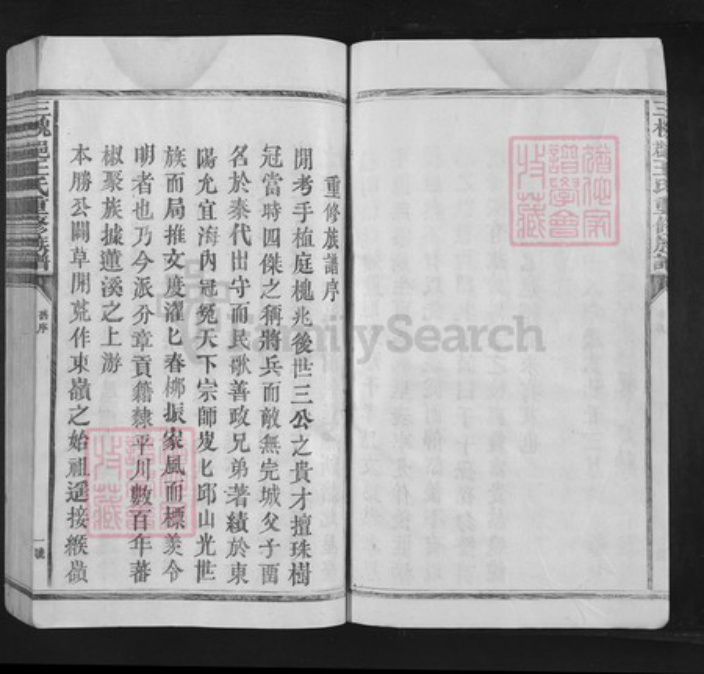 重修族譜序
閒考手植庭槐兆後世三公之貴才擅珠樹
冠當時四傑之稱將兵而敵無完城父子面
名於秦代出守而民歌善政兄弟著績於東
陽允宜海內冠冕天下宗師叟匕邱山光世
族而局推文度濯匕春柳振家風而標羨令
明者也乃今派分章貢籍隸平川數百年蕃
椒聚族據蓮溪之上游
本勝公闢草開荒作東嶺之始祖遥接緱嶺
三槐 王氏重修族譜
舊序
一號
FamilySearch